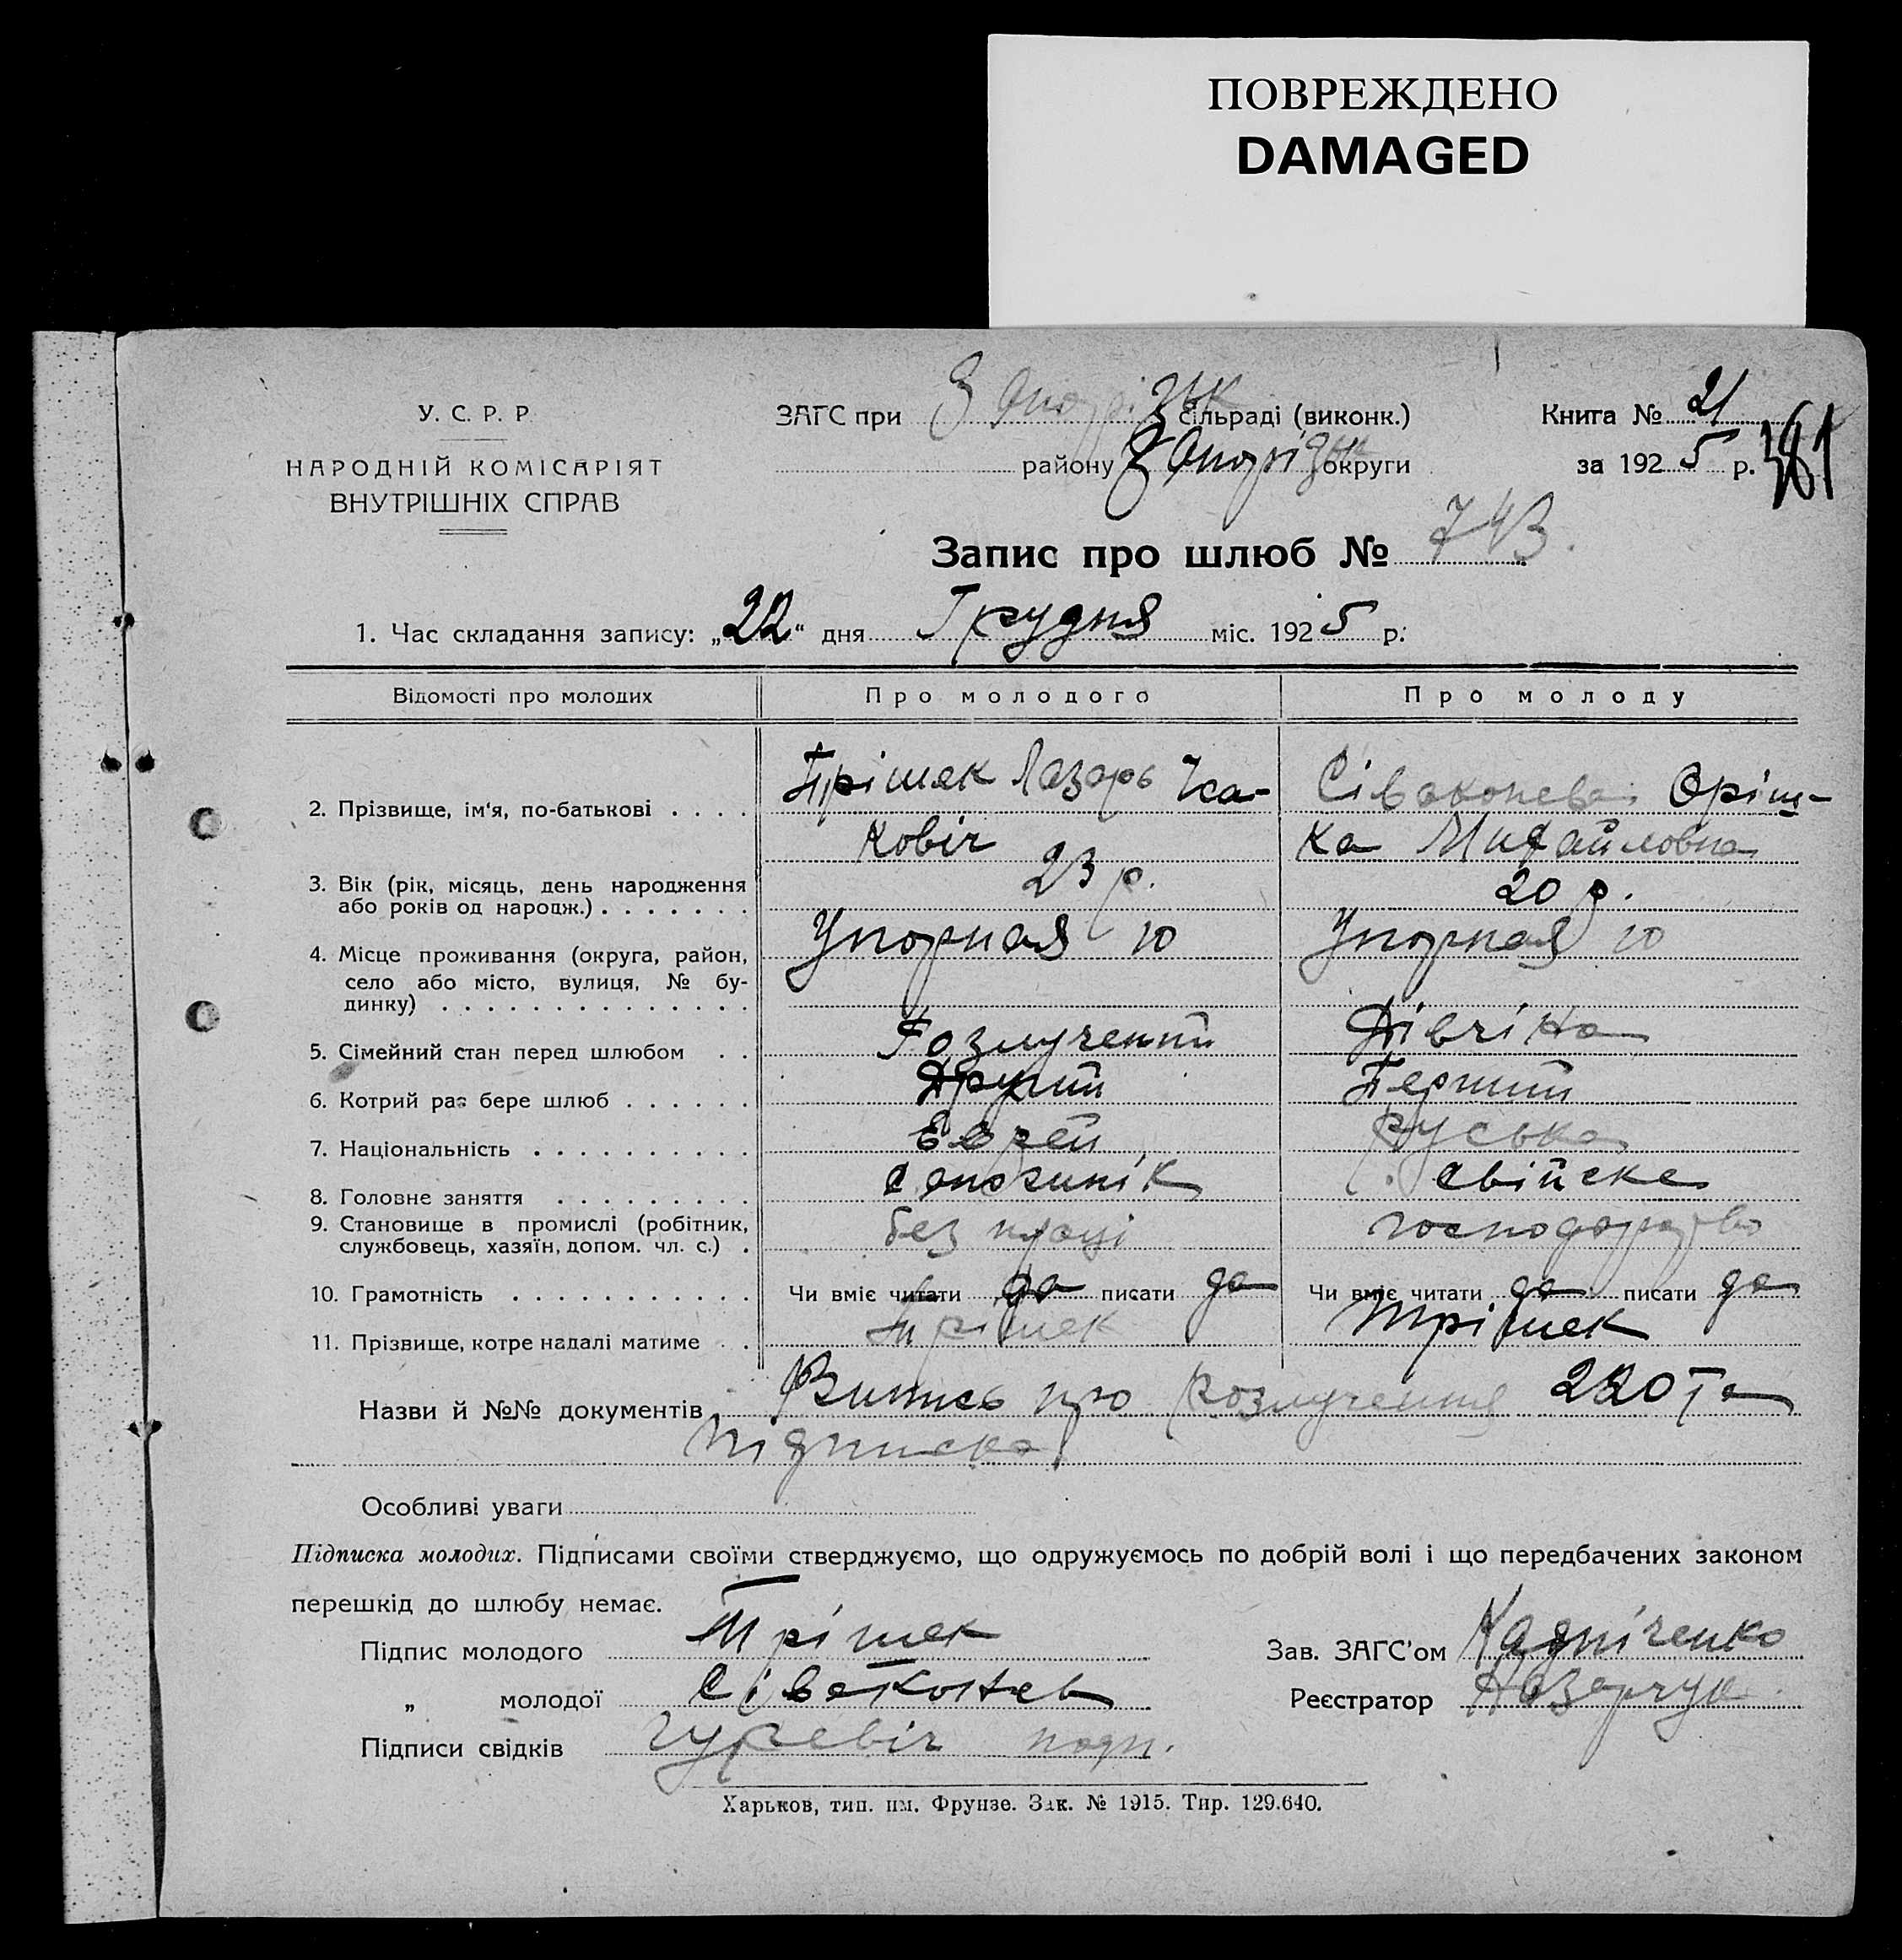 ПОВРЕЖДЕНО
DAMAGED
У. С. Р. Р.
НАРОДНІЙ КОМІСАРІЯТ
ВНУТРІШНІХ СПРАВ
ЗАГС при Запорізьк сільраді (виконк.)
району Запорізьк округи
Книга № 21
за 1925 р.
381
Запис про шлюб № 743.
1. Час складання запису: „22“ дня Грудня міс. 1925 р.
Відомості про молодих Про молодого Про молоду
2. Прізвище, ім'я, по-батькові Трішек Лазарь Іса- Сівоконева Оріш-
ковіч ка Михайловна
3. Вік (рік, місяць, день народження 23 р. 20 р.
або років од народж.)
4. Місце проживання (округа, район, Упорная 10 Упорная 10
село або місто, вулиця, № бу-
динку)
5. Сімейний стан перед шлюбом Розлучений Дівчіна
6. Котрий раз бере шлюб Другий Перший
7. Національність Еврей руська
8. Головне заняття Сапожнік свійске
9. Становище в промислі (робітник, без праці господарство
службовець, хазяїн, допом. чл. с.)
10. Грамотність Чи вміє читати да писати да Чи вміє читати да писати да
11. Прізвище, котре надалі матиме Трішек Трішек
Назви й №№ документів Випись про розлучення 220 та
підписка
Особливі уваги
Підписка молодих. Підписами своїми стверджуємо, що одружуємось по добрій волі і що передбачених законом
перешкід до шлюбу немає.
Підпис молодого Трішек
Зав. ЗАГС'ом
„ молодої Сівоконев
Реєстратор Назарчук
Підписи свідків Гуревіч подп.
Харьков, тип. им. Фрунзе. Зак. № 1915. Тир. 129.640.